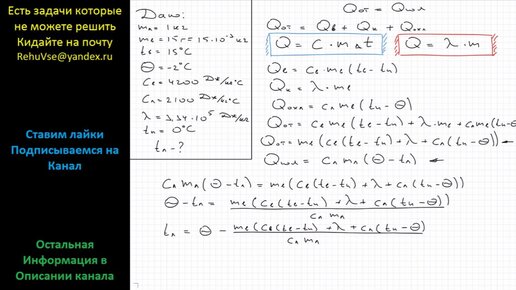 Есть задачи которые
не можете решить
Кидайте на почту
RehuVse@yandex.ru
Ставим лайки
Подписываемся на
Канал
Остальная
Информация в
Описании канала
Дано:
mл = 1 кг
mв = 15 г = 15·10⁻³ кг
tв = 15°C
Θ = -2°C
Cв = 4200 Дж/кг°C
Cл = 2100 Дж/кг°C
λ = 3.34·10⁵ Дж/кг
tп = 0°C
tл - ?
Qот = Qпол
Qот = Qв + Qк + Qохл
Q = C·mΔt
Q = λ·m
Qв = Cв mв (tв - tп)
Qк = λ·mв
Qохл = Cл mв (tп - Θ)
Qот = Cв mв (tв - tп) + λ·mв + Cл mв (tп - Θ)
Qот = mв (Cв (tв - tп) + λ + Cл (tп - Θ))
Qпол = Cл mл (Θ - tл)
Cл mл (Θ - tл) = mв (Cв (tв - tп) + λ + Cл (tп - Θ))
Θ - tл = mв (Cв (tв - tп) + λ + Cл (tп - Θ)) / Cл mл
tл = Θ - mв (Cв (tв - tп) + λ + Cл (tп - Θ)) / Cл mл